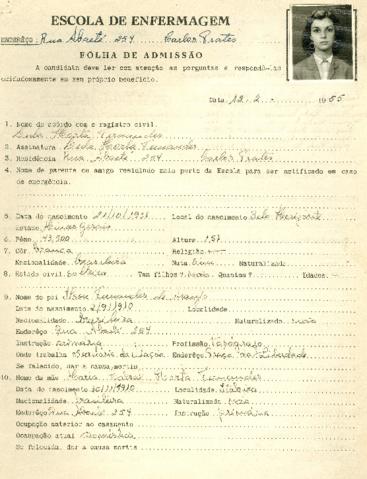 ESCOLA DE ENFERMAGEM
ENDERÊÇO: Rua Abaeté 254 Carlos Prates
FÔLHA DE ADMISSÃO
A candidata deve ler com atenção as perguntas e respondê-las
cuidadosamente em seu próprio benefício.
Data 12. 2. - 1955
1. Nome de acôrdo com o registro civil.
Fernandes
2. Assinatura Fernandes
3. Residência Rua Abaeté 254 Carlos Prates
4. Nome de parente ou amigo residindo mais perto da Escola para ser notificado em caso
de emergência.
5. Data do nascimento Local do nascimento Belo Horizonte
Estado Minas Gerais
6. Pêso Altura 1,57
7. Côr branca Religião
Nacionalidade brasileira Nata Naturalizada
8. Estado civil Tem filhos? Quantos? Idades
9. Nome do pai Fernandes de Araujo
Data do nascimento 2/9/1910 Localidade
Nacionalidade brasileira Naturalizado
Enderêço Rua Abaeté 254
Instrução primária Profissão Tipógrafo
Onde trabalha Enderêço Liberdade
Se falecido, dar a causa mortis
10. Nome da mãe Maria Horta Fernandes
Data do nascimento Localidade Itabira
Nacionalidade brasileira Naturalizada
Enderêço Rua Abaeté 254 Instrução primária
Ocupação anterior ao casamento
Ocupação atual doméstica
Se falecida, dar a causa mortis